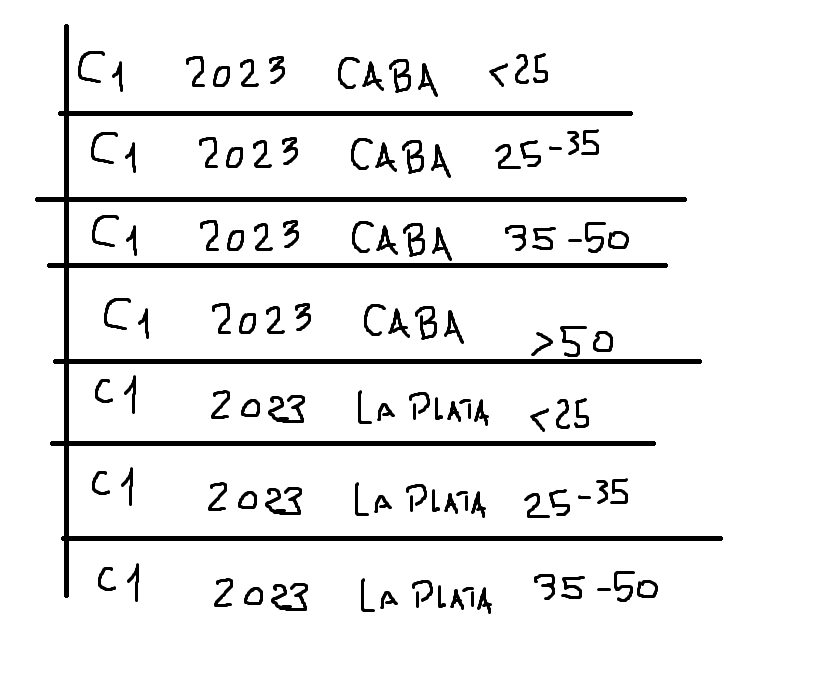 C1 2023 CABA <25
C1 2023 CABA 25-35
C1 2023 CABA 35-50
C1 2023 CABA >50
C1 2023 LA PLATA <25
C1 2023 LA PLATA 25-35
C1 2023 LA PLATA 35-50